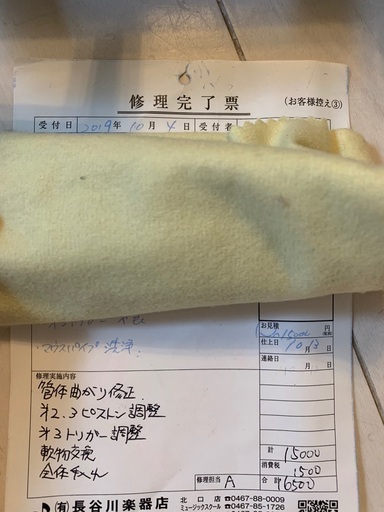 修理完了票
(お客様控え③)
受付日 2019年 10月 4日 受付者
マウスパイプ 洗浄
お見積
15000 円
仕上日 10月 13日
連絡日 月 日
修理実施内容
管体曲がり修正
第2.3ピストン調整
第3トリガー調整
軟物交換
全体調整
計 15000
消費税 1500
修理担当 A 合計 16500
(有)長谷川楽器店
北口店 ☎0467-88-0009
ミュージックスクール ☎0467-85-1726